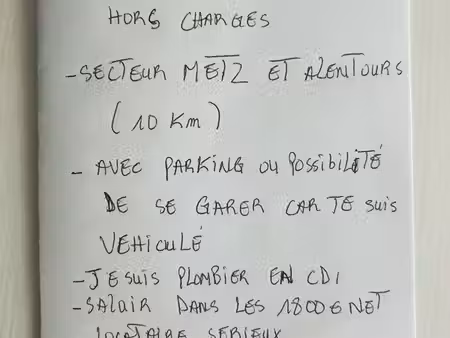 HORS CHARGES
- SECTEUR METZ ET ALENTOURS
( 10 Km )
- AVEC PARKING OU POSSIBILITÉ
DE SE GARER CAR JE SUIS
VEHICULÉ
- JE SUIS PLOMBIER EN CDI
- SALAIR DANS LES 1800 € NET
LOCATAIRE SERIEUX